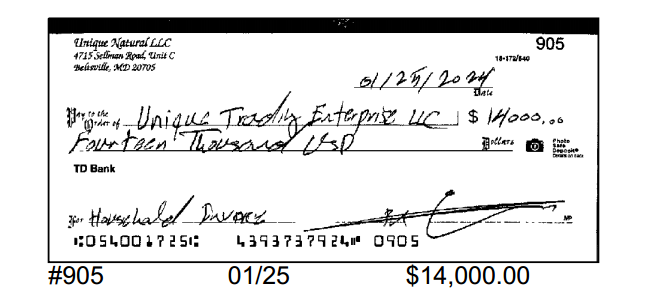 Unique Natural LLC
905
4715 Sellman Road, Unit C
18-172/540
Beltsville, MD 20705
01/25/2024
Date
Pay to the Order of Unique Trading Enterprise LLC $ 14000.00
Fourteen Thousand USD Dollars Photo Safe Deposit® Details on back
TD Bank
For Household Invoice
MP
⑆054001725⑆ 4393737924⑈ 0905
#905 01/25 $14,000.00